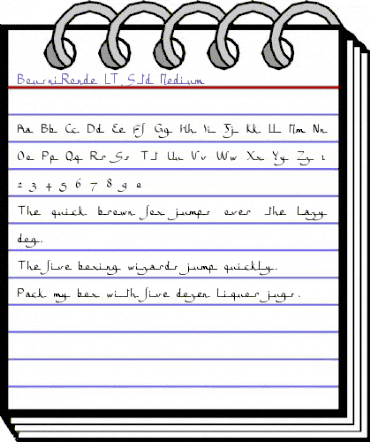 BourniRonde LT Std Medium
Aa Bb Cc Dd Ee Ff Gg Hh Ii Jj Kk Ll Mm Nn
Oo Pp Qq Rr Ss Tt Uu Vv Ww Xx Yy Zz 1
2 3 4 5 6 7 8 9 0
The quick brown fox jumps over the lazy
dog.
The five boxing wizards jump quickly.
Pack my box with five dozen liquor jugs.